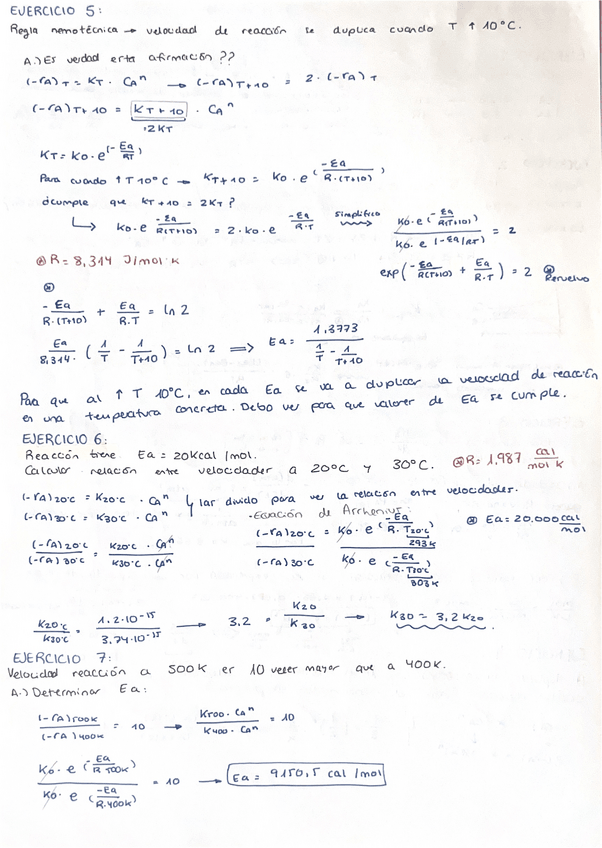 EJERCICIO 5:
Regla nemotécnica → velocidad de reacción se duplica cuando T ↑ 10°C.
A.) Es verdad esta afirmación ??
(-rA)T = KT · CA^n → (-rA)T+10 = 2 · (-rA)T
(-rA)T+10 = KT+10 · CA^n
·2KT
KT = K0 · e^(-Ea/RT)
Para cuando ↑T 10°C → KT+10 = K0 · e^(-Ea/R·(T+10))
¿cumple que KT+10 = 2KT?
↳ K0 · e^(-Ea/R(T+10)) = 2 · K0 · e^(-Ea/R·T) simplifico K0 · e^(-Ea/R(T+10)) / K0 · e^(-Ea/RT) = 2
⊛ R = 8,314 J/mol·K
exp(-Ea/R(T+10) + Ea/R·T) = 2 ⊛ Resuelvo
⊛
-Ea/R·(T+10) + Ea/R·T = ln 2
Ea/8,314 · (1/T - 1/T+10) = ln 2 ⟹ Ea = 1,3773 / (1/T - 1/T+10)
Para que al ↑ T 10°C, en cada Ea se va a duplicar la velocidad de reacción
en una temperatura concreta. Debo ver para que valores de Ea se cumple.
EJERCICIO 6:
Reacción tiene Ea = 20Kcal/mol.
Calcular relación entre velocidades a 20°C y 30°C. ⊛ R = 1,987 cal/mol K
(-rA)20°C = K20°C · CA^n
(-rA)30°C = K30°C · CA^n
las divido para ver la relación entre velocidades.
-Ecuación de Arrhenius:
⊛ Ea = 20.000 cal/mol
(-rA)20°C / (-rA)30°C = K20°C · CA^n / K30°C · CA^n
(-rA)20°C / (-rA)30°C = K0 · e^(-Ea/R·T20°C) / K0 · e^(-Ea/R·T30°C)
293K
303K
K20°C / K30°C = 1.2·10^-15 / 3.74·10^-15 → 3,2 = K20 / K30 → K30 = 3,2 K20
EJERCICIO 7:
Velocidad reacción a 500K es 10 veces mayor que a 400K.
A.) Determinar Ea:
(-rA)500K / (-rA)400K = 10 → K500 · CA^n / K400 · CA^n = 10
K0 · e^(-Ea/R·500K) / K0 · e^(-Ea/R·400K) = 10 → Ea = 9150,5 cal/mol